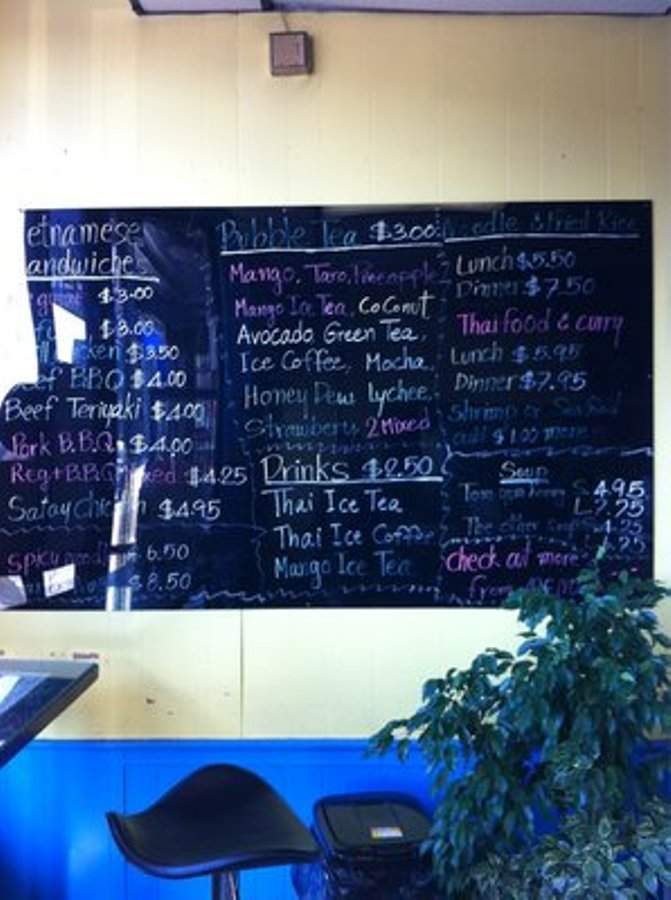 etnamese
andwiche
$3.00
$3.00
cken $3.50
ef B.B.Q $4.00
Beef Teriyaki $4.00
Pork B.B.Q. $4.00
Reg+B.B.Q ixed $4.25
Satay chic n $4.95
spicy 6.50
$8.50
Bubble Tea $3.00
Mango, Taro, Pineapple
Mango Ice Tea, Coconut
Avocado Green Tea,
Ice Coffee, Mocha,
Honey Dew lychee,
Strawberry 2 Mixed
Drinks $2.50
Thai Ice Tea
Thai Ice Coffee
Mango Ice Tea
oodle & Fried Rice
Lunch $5.50
Dinner $7.50
Thai food & curry
Lunch $5.95
Dinner $7.95
Shrimp or Sea food
add $1.00 more
Soup
Tom S 4.95
L 7.25
The other soup 4.25
.25
check out more
from